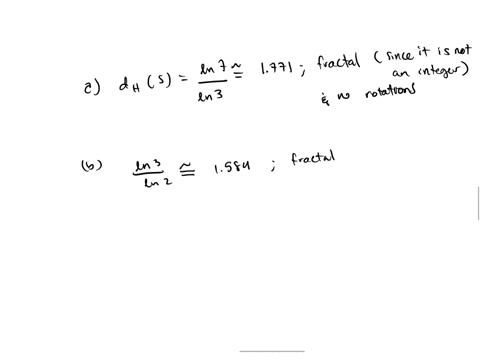 a) d_H (S) = ln 7 / ln 3 ≅ 1.771 ; fractal (since it is not
an integer)
& no rotations
(b) ln 3 / ln 2 ≅ 1.584 ; fractal